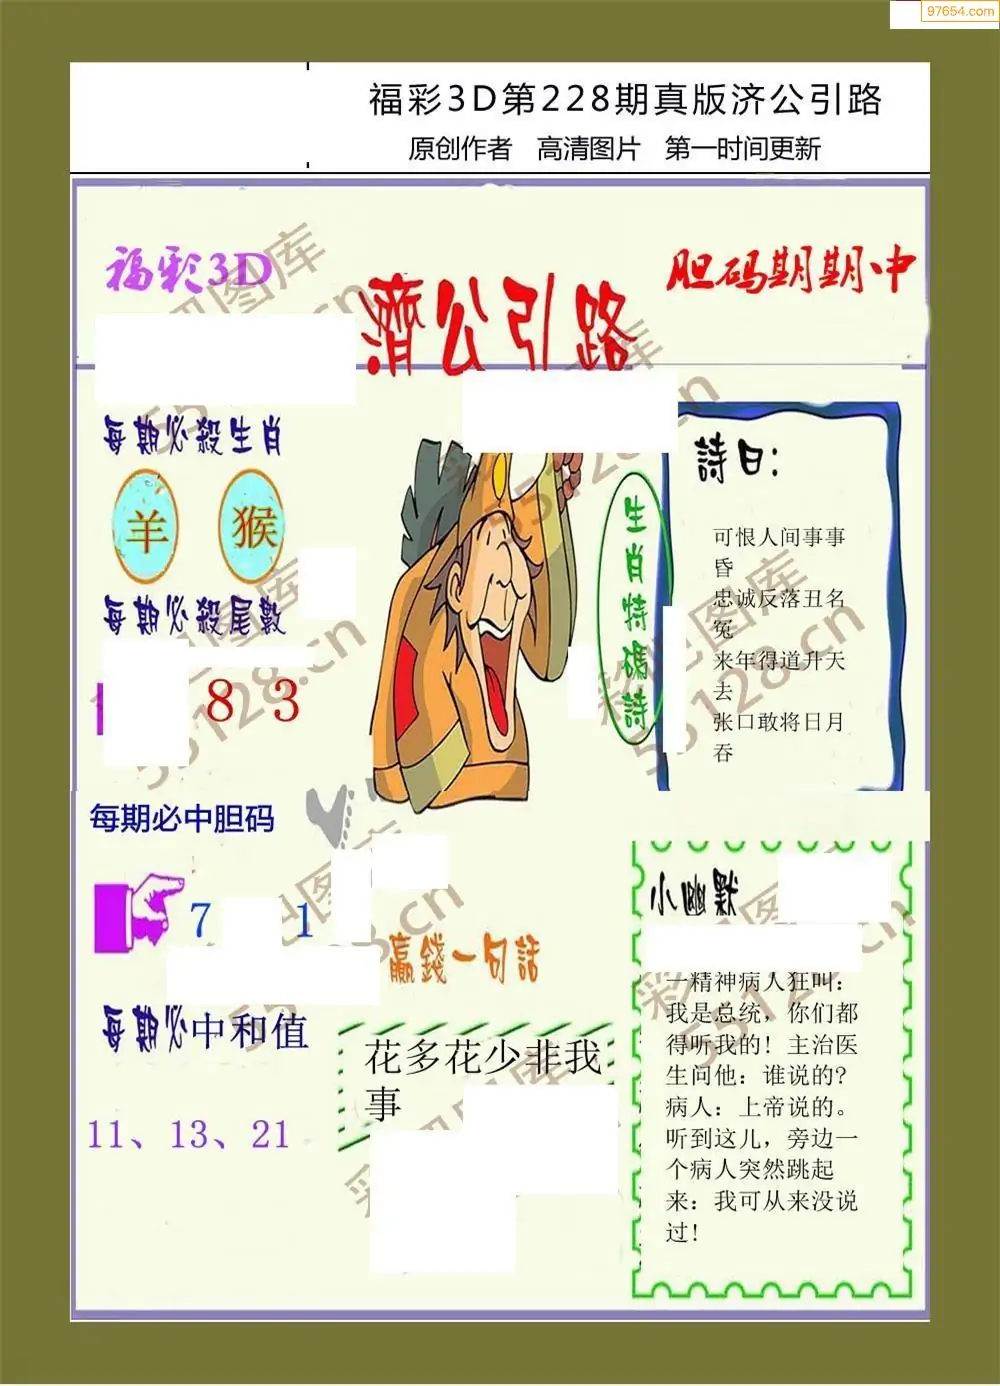 97654.com
福彩3D第228期真版济公引路
原创作者 高清图片 第一时间更新
福彩3D
濟公引路
胆码期期中
每期必殺生肖
羊 猴
每期必殺尾數
8 3
每期必中胆码
7 1
每期必中和值
11、13、21
生肖特碼詩
詩曰:
可恨人间事事
昏
忠诚反落丑名
冤
来年得道升天
去
张口敢将日月
吞
赢錢一句話
花多花少非我
事
小幽默
一精神病人狂叫:
我是总统，你们都
得听我的！主治医
生问他：谁说的?
病人：上帝说的。
听到这儿，旁边一
个病人突然跳起
来：我可从来没说
过!
彩吧图库
55128.cn